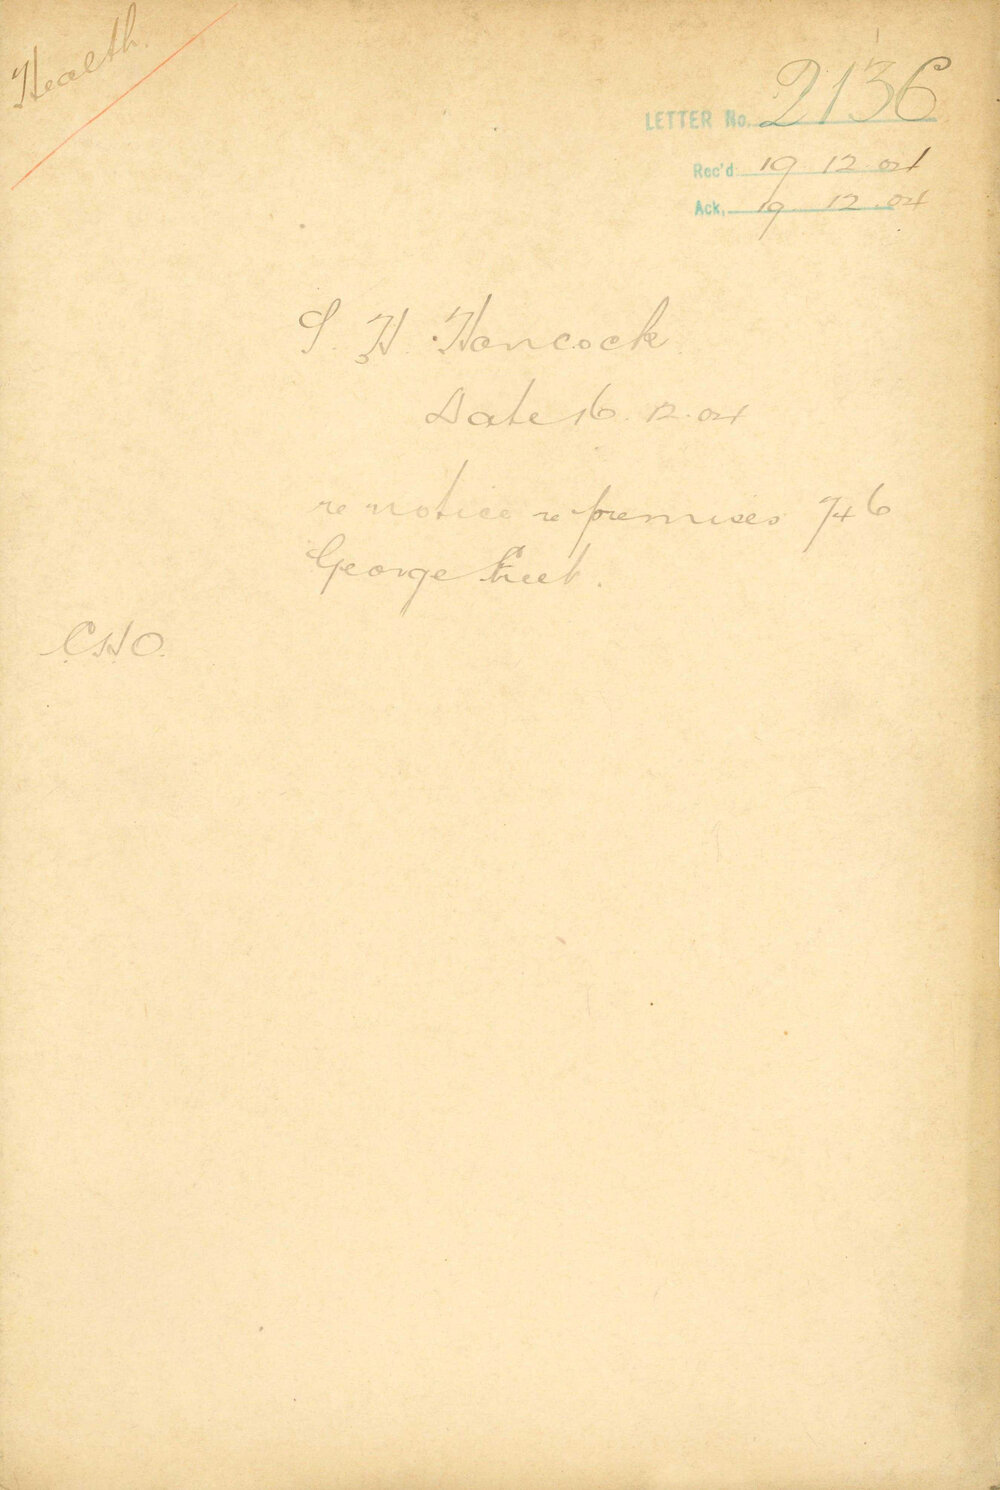 Health.
LETTER No. 2136
Rec'd 19.12.04
Ack. 19.12.04
S. H. Hancock
Date 16.12.04
re notice re premises 746
George Street.
CHO.